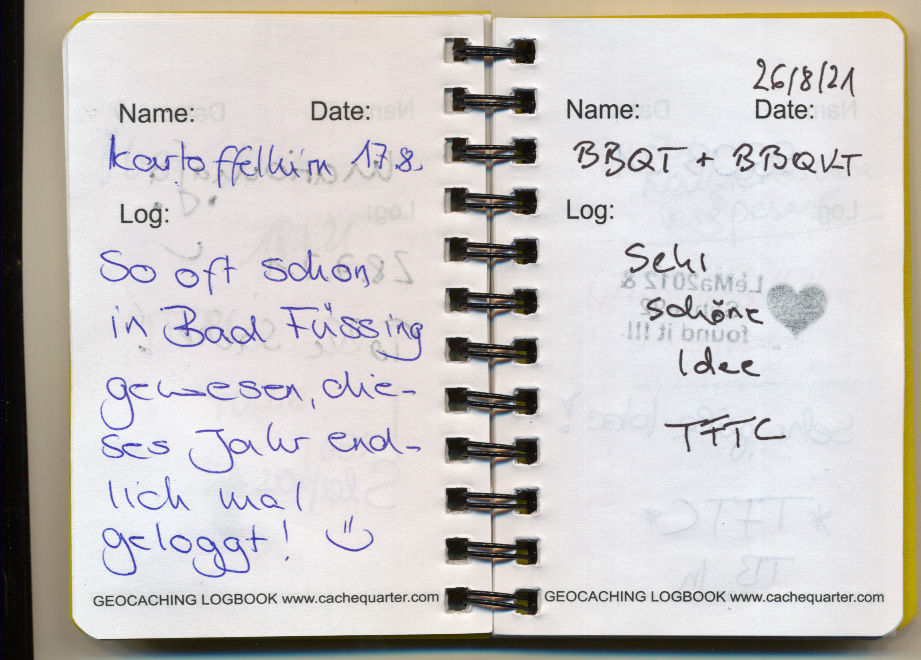 Name: Date:
Kartoffelhirn 17.8.
Log:
So oft schon
in Bad Füssing
gewesen, die-
ses Jahr end-
lich mal
geloggt!
GEOCACHING LOGBOOK www.cachequarter.com
26/8/21
Name: Date:
BBQT + BBQVT
Log:
Sehr
schöne
Idee
TFTC
GEOCACHING LOGBOOK www.cachequarter.com